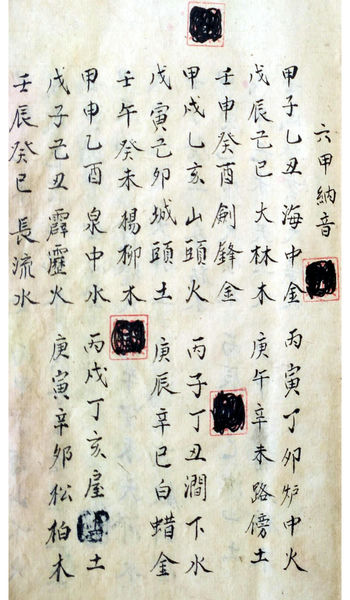 六甲納音
甲子乙丑 海中金 丙寅丁卯炉中火
戊辰己巳 大林木 庚午辛未路傍土
壬申癸酉 劍鋒金
甲戌乙亥 山頭火 丙子丁丑澗下水
戊寅己卯城頭土 庚辰辛巳白蜡金
壬午癸未楊柳木
甲申乙酉 泉中水 丙戌丁亥屋土
戊子己丑 霹靂火 庚寅辛卯松柏木
壬辰癸巳 長流水